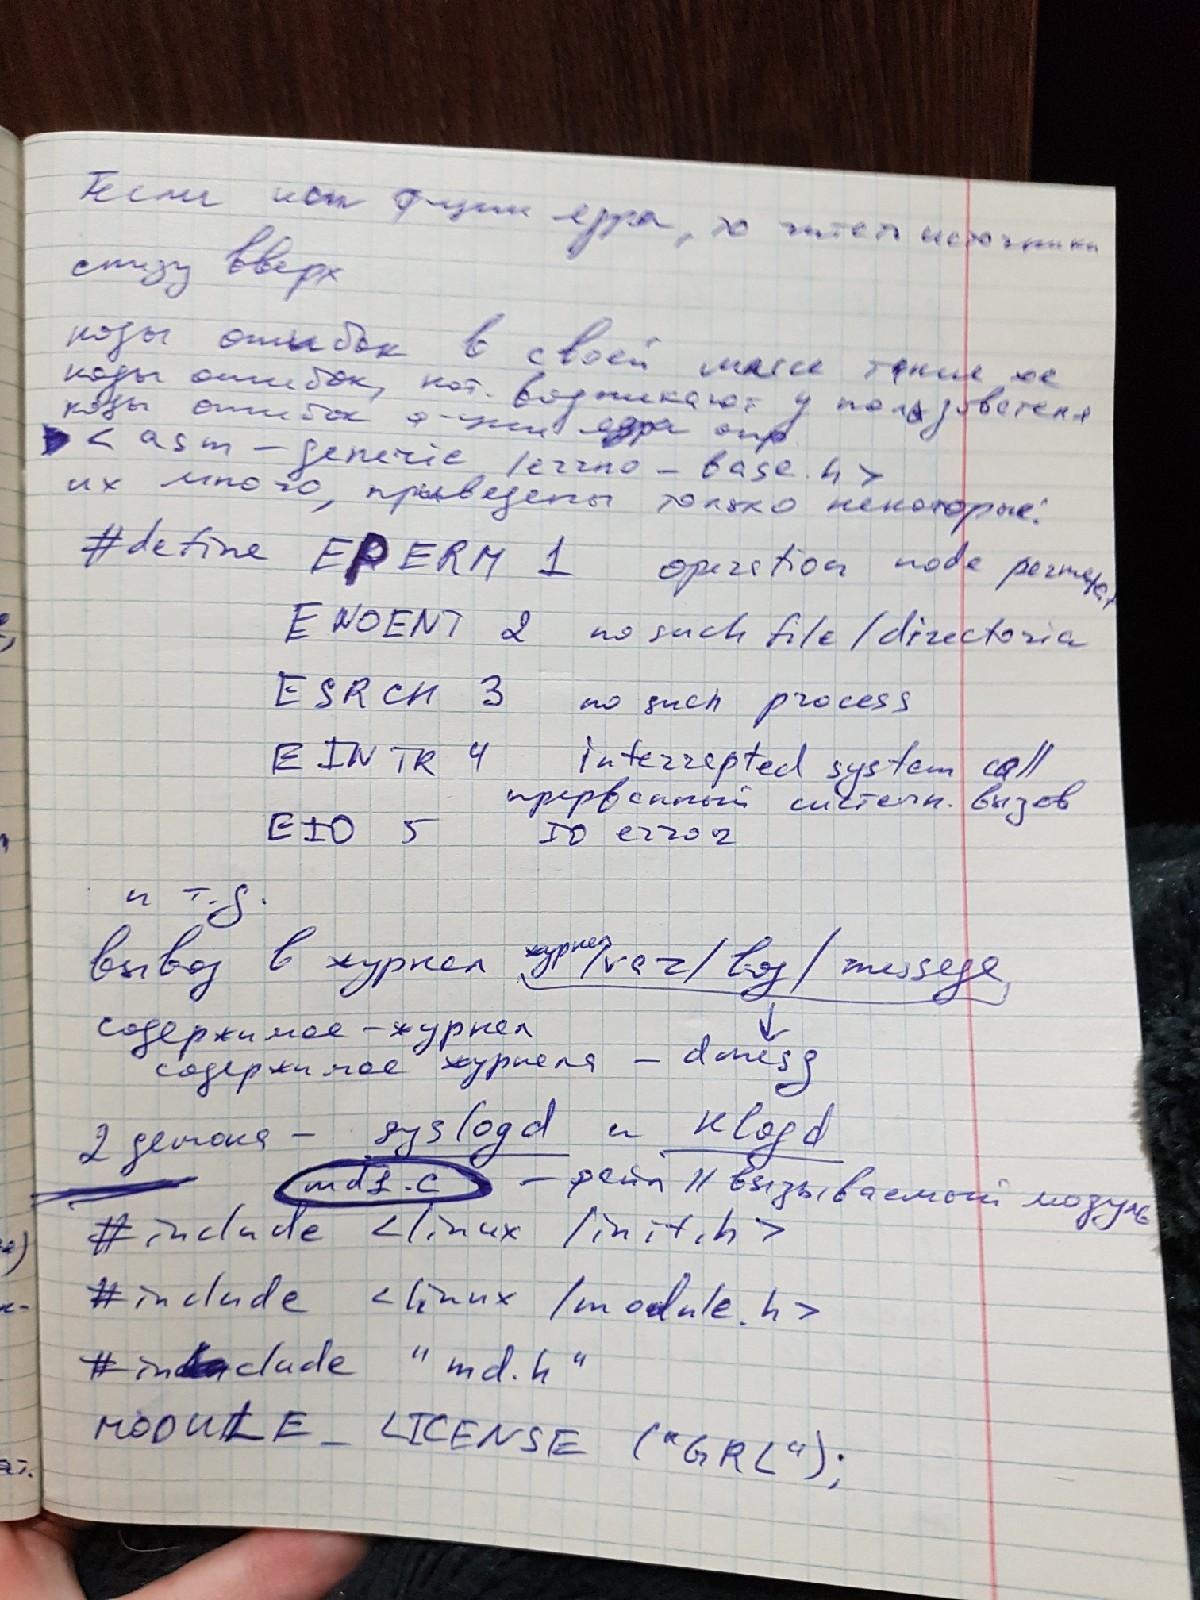 если исп функции ядра, то читать источники
снизу вверх
коды ошибок в своей массе такие же
коды ошибок, кот. возникают у пользователя
коды ошибок функции ядра опр
<asm-generic/errno-base.h>
их много, приведены только некоторые:
#define EPERM 1 operation node
ENOENT 2 no such file/directoria
ESRCH 3 no such process
EINTR 4 interrepted system call
прерванный системн. вызов
EIO 5 IO error
и т.д.
вывод в журнал журнал /var/log/messege
содержимое-журнал
содержимое журнала - dmesg
2 демона - syslogd и klogd
md1.c - файл // вызываемый модуль
#include <linux/init.h>
#include <linux/module.h>
#include "md.h"
MODULE_LICENSE ("GRL");